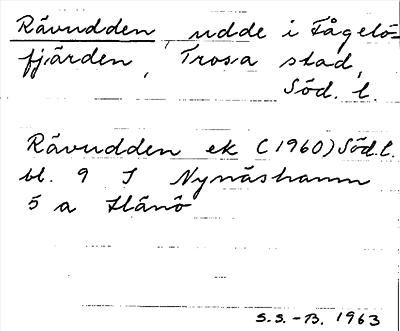 Rävudden, udde i Fågelö=
fjärden, Trosa stad,
Söd. l.
Rävudden ek (1960) Söd. l.
bl. 9 I Nynäshamn
5 a Hånö
S.S.-B. 1963